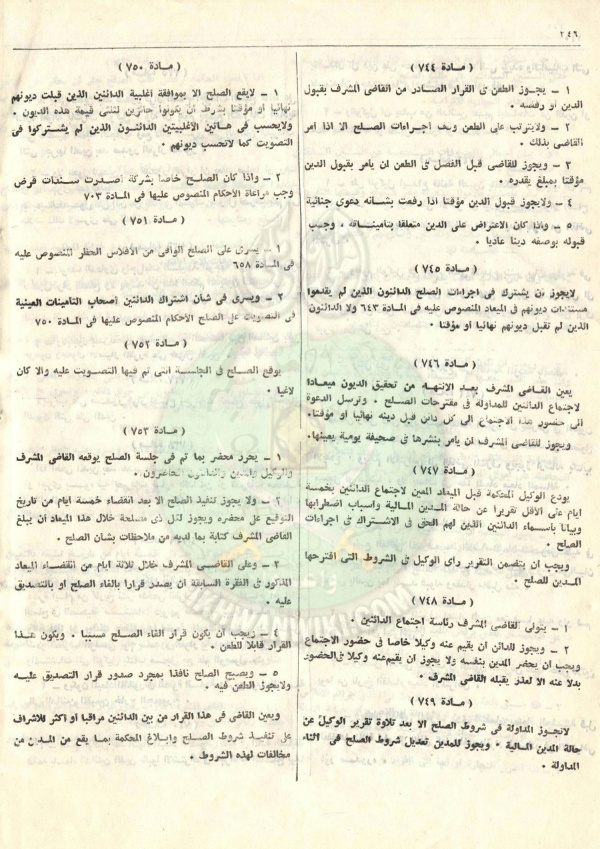 ٢٤٦
( مادة ٧٤٤ )
١ ــ يجوز الطعن فى القرار الصادر من القاضى المشرف بقبول
الدين أو رفضه .
٢ ــ ولايترتب على الطعن وقف اجراءات الصلح الا اذا امر
القاضى بذلك .
٣ ــ ويجوز للقاضى قبل الفصل فى الطعن ان يامر بقبول الدين
مؤقتا بمبلغ يقدره .
٤ ــ ولايجوز قبول الدين مؤقتا اذا رفعت بشانه دعوى جنائية
٥ ــ واذا كان الاعتراض على الدين متعلقا بتاميناته ، وجب
قبوله بوصفه دينا عاديا .
( مادة ٧٤٥ )
لايجوز أن يشترك فى اجراءات الصلح الدائنون الذين لم يقدموا
مستندات ديونهم فى الميعاد المنصوص عليه فى المادة ٦٤٣ ولا الدائنون
الذين لم تقبل ديونهم نهائيا أو مؤقتا .
( مادة ٧٤٦ )
يعين القاضى المشرف بعد الانتهاء من تحقيق الديون ميعادا
لاجتماع الدائنين للمداولة فى مقترحات الصلح . وترسل الدعوة
الى حضور هذا الاجتماع الى كل دائن قبل دينه نهائيا أو مؤقتا .
ويجوز للقاضى المشرف ان يامر بنشرها فى صحيفة يومية يعينها .
( مادة ٧٤٧ )
يودع الوكيل المحكمة قبل الميعاد المعين لاجتماع الدائنين بخمسة
ايام على الأقل تقريرا عن حالة المدين المالية واسباب اضطرابها
وبيانا باسماء الدائنين الذين لهم الحق فى الاشتراك فى اجراءات
الصلح .
ويجب ان يتضمن التقرير راى الوكيل فى الشروط التى اقترحها
المدين للصلح .
( مادة ٧٤٨ )
١ ــ يتولى القاضى المشرف رئاسة اجتماع الدائنين .
٢ ــ ويجوز للدائن أن يقيم عنه وكيلا خاصا فى حضور الاجتماع
ويجب ان يحضر المدين بنفسه ولا يجوز أن يقيم عنه وكيلا فى الحضور
بدلا عنه الا لعذر يقبله القاضى المشرف .
( مادة ٧٤٩ )
لاتجوز المداولة فى شروط الصلح الا بعد تلاوة تقرير الوكيل عن
حالة المدين المالية . ويجوز للمدين تعديل شروط الصلح فى اثناء
المداولة .
( مادة ٧٥٠ )
١ ــ لايقع الصلح الا بموافقة اغلبية الدائنين الذين قبلت ديونهم
نهائيا أو مؤقتا بشرط أن يكونوا حائزين لثلثى قيمة هذه الديون .
ولايحسب فى هاتين الأغلبيتين الدائنون الذين لم يشتركوا فى
التصويت كما لاتحسب ديونهم .
٢ ــ واذا كان الصلح خاصا بشركة اصدرت سندات قرض
وجب مراعاة الأحكام المنصوص عليها فى المادة ٧٠٣
( مادة ٧٥١ )
١ ــ يسرى على الصلح الواقى من الأفلاس الحظر المنصوص عليه
فى المادة ٦٥٨
٢ ــ ويسرى فى شان اشتراك الدائنين أصحاب التامينات العينية
فى التصويت على الصلح الأحكام المنصوص عليها فى المادة ٧٥٠
( مادة ٧٥٢ )
يوقع الصلح فى الجلسة التى تم فيها التصويت عليه والا كان
لاغيا .
( مادة ٧٥٣ )
١ ــ يحرر محضر بما تم فى جلسة الصلح يوقعه القاضى المشرف
والوكيل والمدين والدائنون الحاضرون .
٢ ــ ولا يجوز تنفيذ الصلح الا بعد انقضاء خمسة ايام من تاريخ
التوقيع على محضره ويجوز لكل ذى مصلحة خلال هذا الميعاد أن يبلغ
القاضى المشرف كتابة بما لديه من ملاحظات بشان الصلح .
٣ ــ وعلى القاضى المشرف خلال ثلاثة ايام من انقضاء الميعاد
المذكور فى الفقرة السابقة ان يصدر قرارا بالغاء الصلح او بالتصديق
عليه .
٤ ــ ويجب ان يكون قرار الغاء الصلح مسببا . ويكون هذا
القرار قابلا للطعن .
٥ ــ ويصبح الصلح نافذا بمجرد صدور قرار التصديق عليه
ولايجوز الطعن فيه .
ويعين القاضى فى هذا القرار من بين الدائنين مراقبا أو اكثر للاشراف
على تنفيذ شروط الصلح وابلاغ المحكمة بما يقع من المدين من
مخالفات لهذه الشروط .
IKHWANWIKI.COM